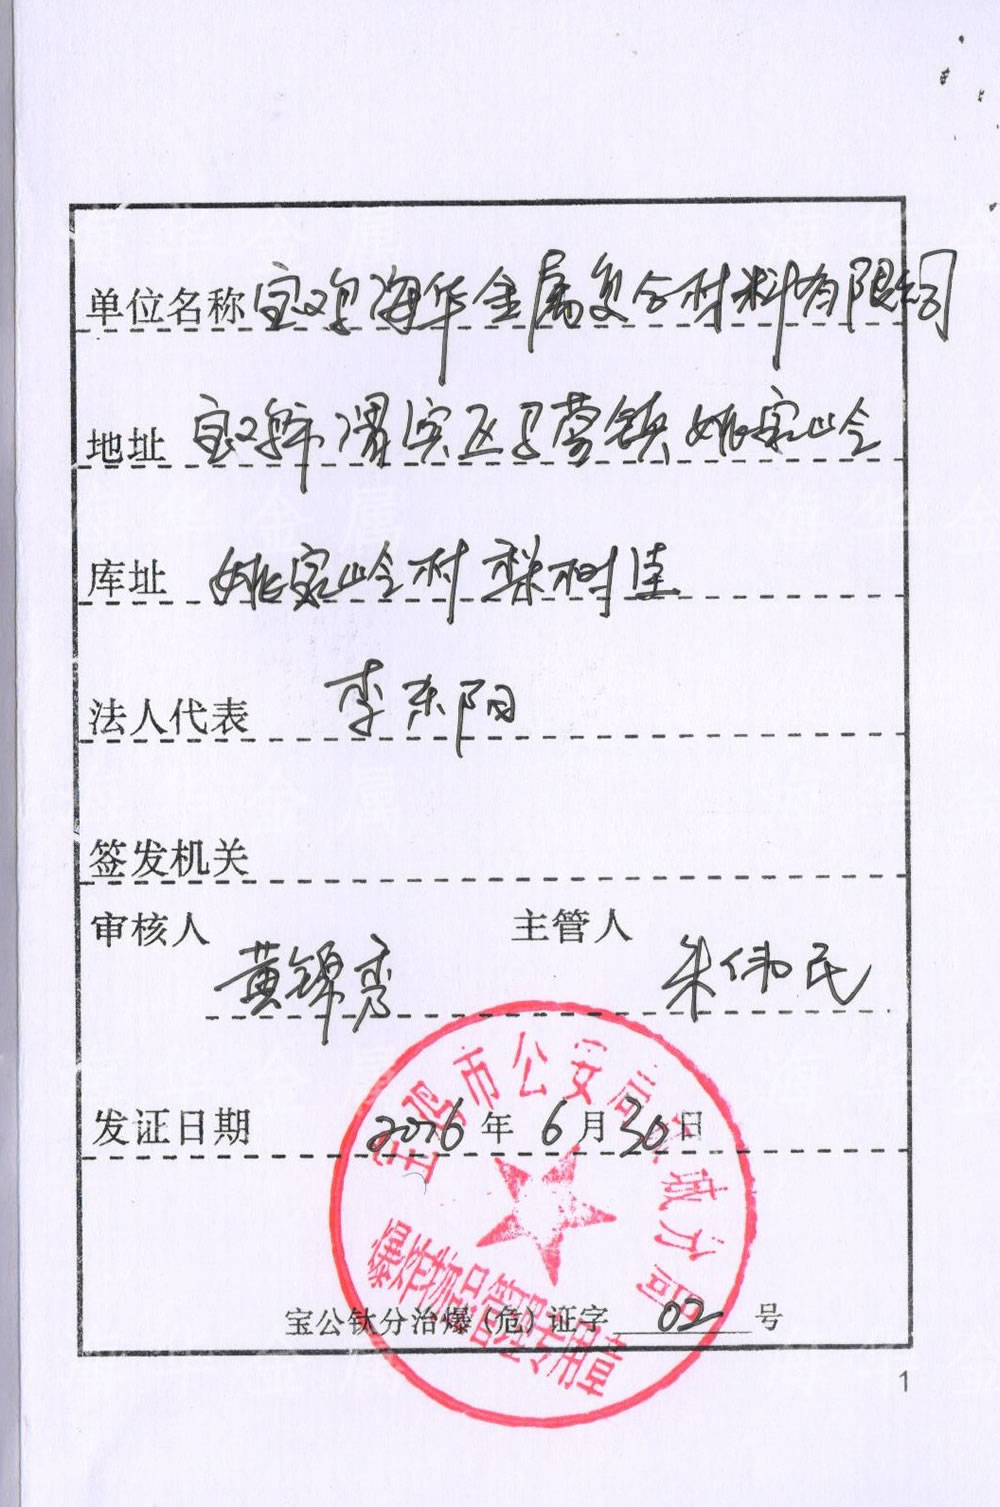 单位名称 宝鸡海华金属复合材料有限公司
地址 宝鸡市渭滨区马营镇姚家岭
库址 姚家岭村梨树洼
法人代表 李东阳
签发机关
审核人 主管人
黄锦秀 朱伟民
发证日期 2016年6月30日
宝鸡市公安局钛城分局
爆炸物品管理专用章
宝公钛分治爆(危)证字 02 号
1
海华金属